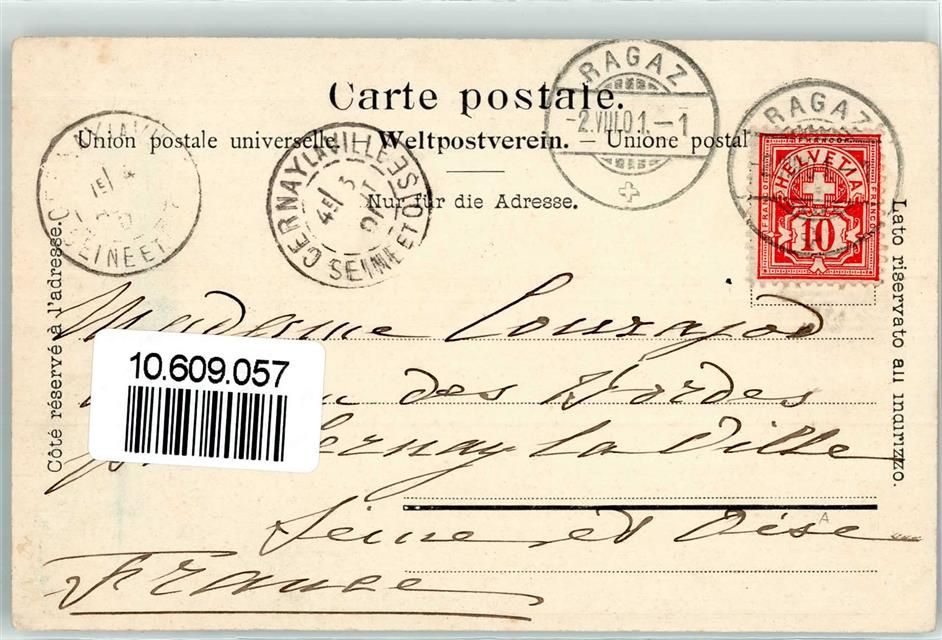 Carte postale.
Union postale universelle. — Weltpostverein. — Unione postal
Nur für die Adresse.
Côté réservé à l'adresse.
Lato riservato au indirizzo.
RAGAZ
-2.VIII.01.-1
RAGAZ
CERNAY LA VILLE
4E / 3
SEINE ET OISE
SEINE ET
FRANCO
HELVETIA
FRANCO
FRANCO
10
Madame Courajod
des Vordes
Cernay la Ville
Seine et Oise
France
10.609.057
A